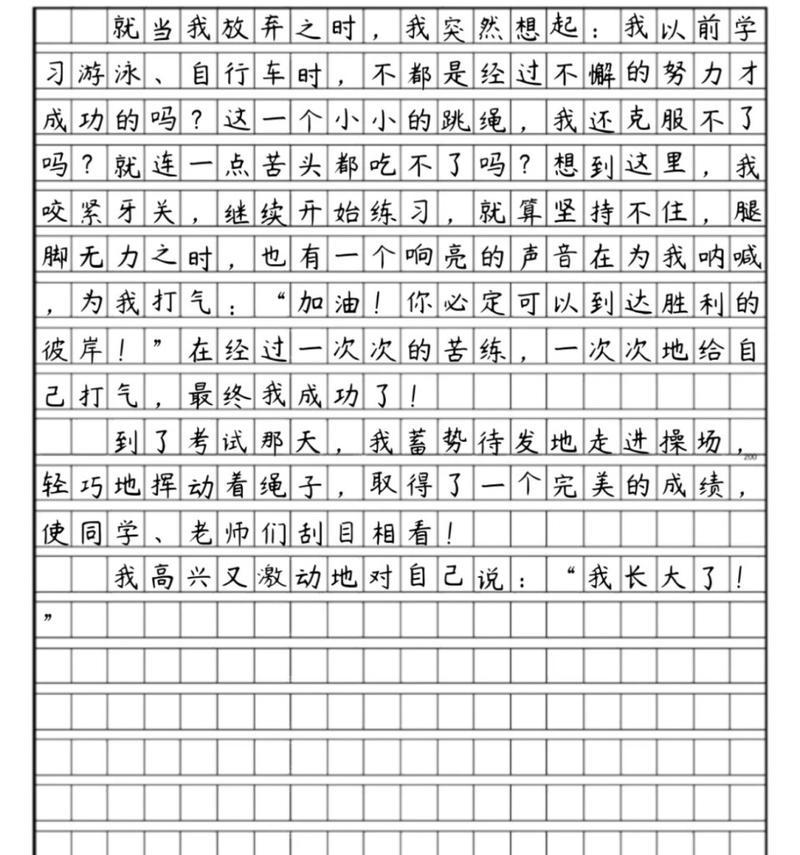 就当我放弃之时，我突然想起：我以前学
习游泳、自行车时，不都是经过不懈的努力才
成功的吗？这一个小小的跳绳，我还克服不了
吗？就连一点苦头都吃不了吗？想到这里，我
咬紧牙关，继续开始练习，就算坚持不住，腿
脚无力之时，也有一个响亮的声音在为我呐喊
，为我打气：“加油！你必定可以到达胜利的
彼岸！”在经过一次次的苦练，一次次地给自
己打气，最终我成功了！
到了考试那天，我蓄势待发地走进操场，
200
轻巧地挥动着绳子，取得了一个完美的成绩，
使同学、老师们刮目相看！
我高兴又激动地对自己说：“我长大了！
”